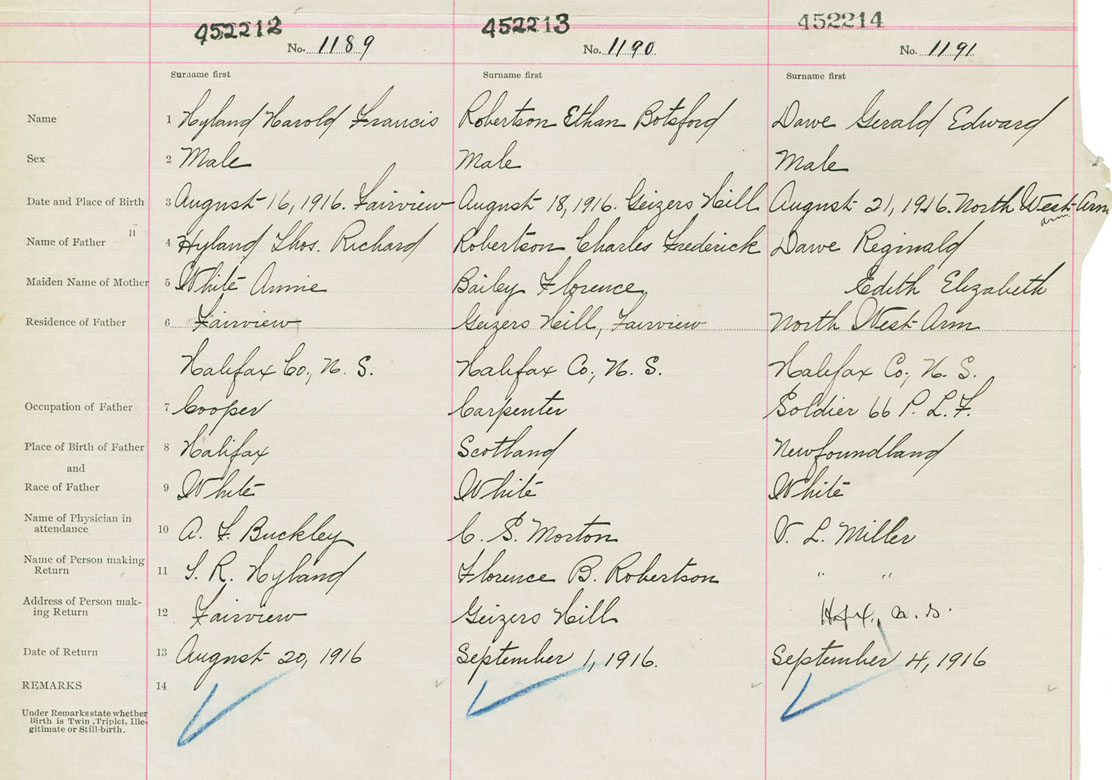 452212 452213 452214
No. 1189 No. 1190 No. 1191
Surname first Surname first Surname first
Name 1 Hyland Harold Francis Robertson Ethan Botsford Dawe Gerald Edward
Sex 2 Male Male Male
Date and Place of Birth 3 August 16, 1916. Fairview August 18, 1916. Geizers Hill August 21, 1916. North West Arm
Arm
Name of Father 4 Hyland Thos. Richard Robertson Charles Frederick Dawe Reginald
Maiden Name of Mother 5 White Annie Bailey Florence Edith Elizabeth
Residence of Father 6 Fairview Geizers Hill, Fairview North West Arm
Halifax Co., N. S. Halifax Co., N. S. Halifax Co., N. S.
Occupation of Father 7 Cooper Carpenter Soldier 66 P. L. F.
Place of Birth of Father 8 Halifax Scotland Newfoundland
and
Race of Father 9 White White White
Name of Physician in
attendance 10 A. F. Buckley C. S. Morton V. L. Miller
Name of Person making
Return 11 T. R. Hyland Florence B. Robertson " "
Address of Person mak-
ing Return 12 Fairview Geizers Hill Hfx.,
Date of Return 13 August 20, 1916 September 1, 1916. September 4, 1916
REMARKS 14
Under Remarks state whether
Birth is Twin, Triplet, Ille-
gitimate or Still-birth.